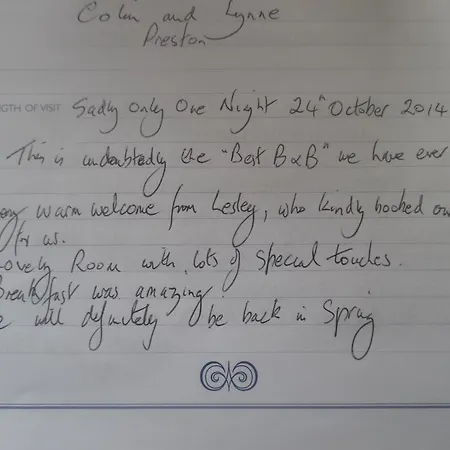 Colin and Lynne
Preston
GTH OF VISIT Sadly Only One Night 24th October 2014
This is undoubtedly the "Best B&B" we have ever
ery warm welcome from Lesley, who kindly booked ou
for us.
Lovely Room with lots of special touches.
Breakfast was amazing!
e will definitely be back in Spring